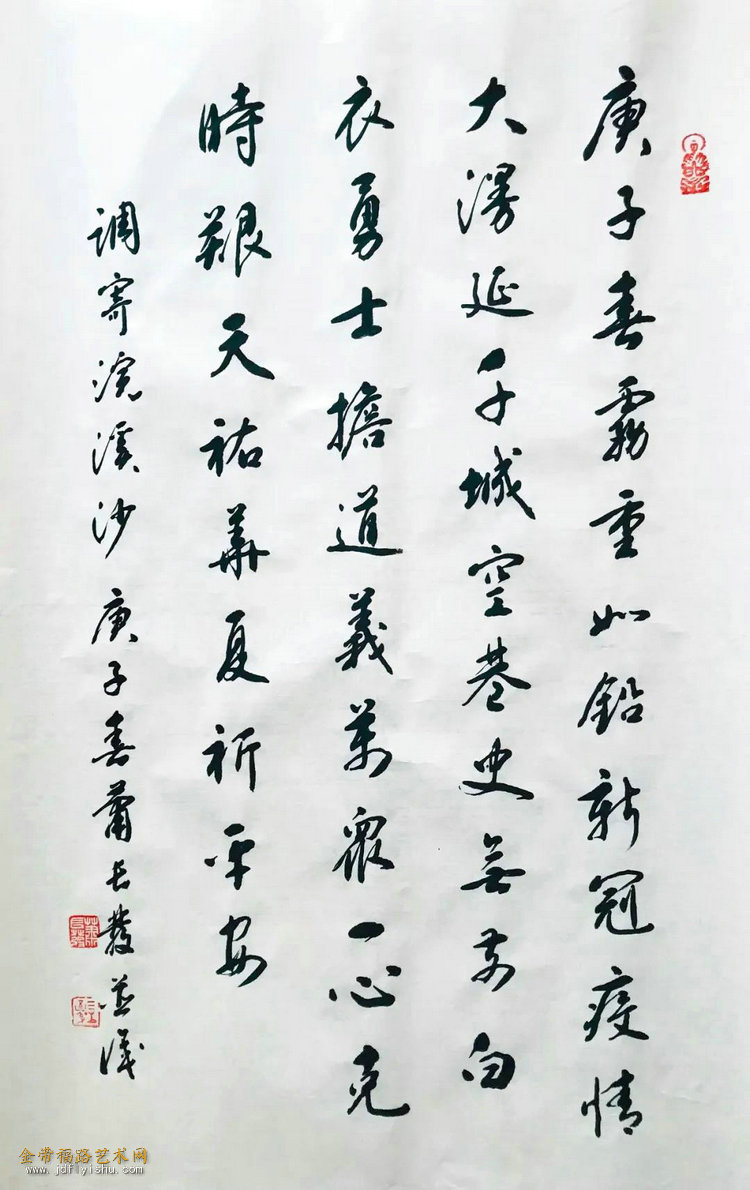 庚子春霧重如鉛新冠疫情
大漫延千城空巷史無前白
衣勇士擔道義萬眾一心克
時艱天祐華夏祈平安
调寄浣溪沙庚子春蕭长發並識
金带福路艺术网
www.jdflyishu.com